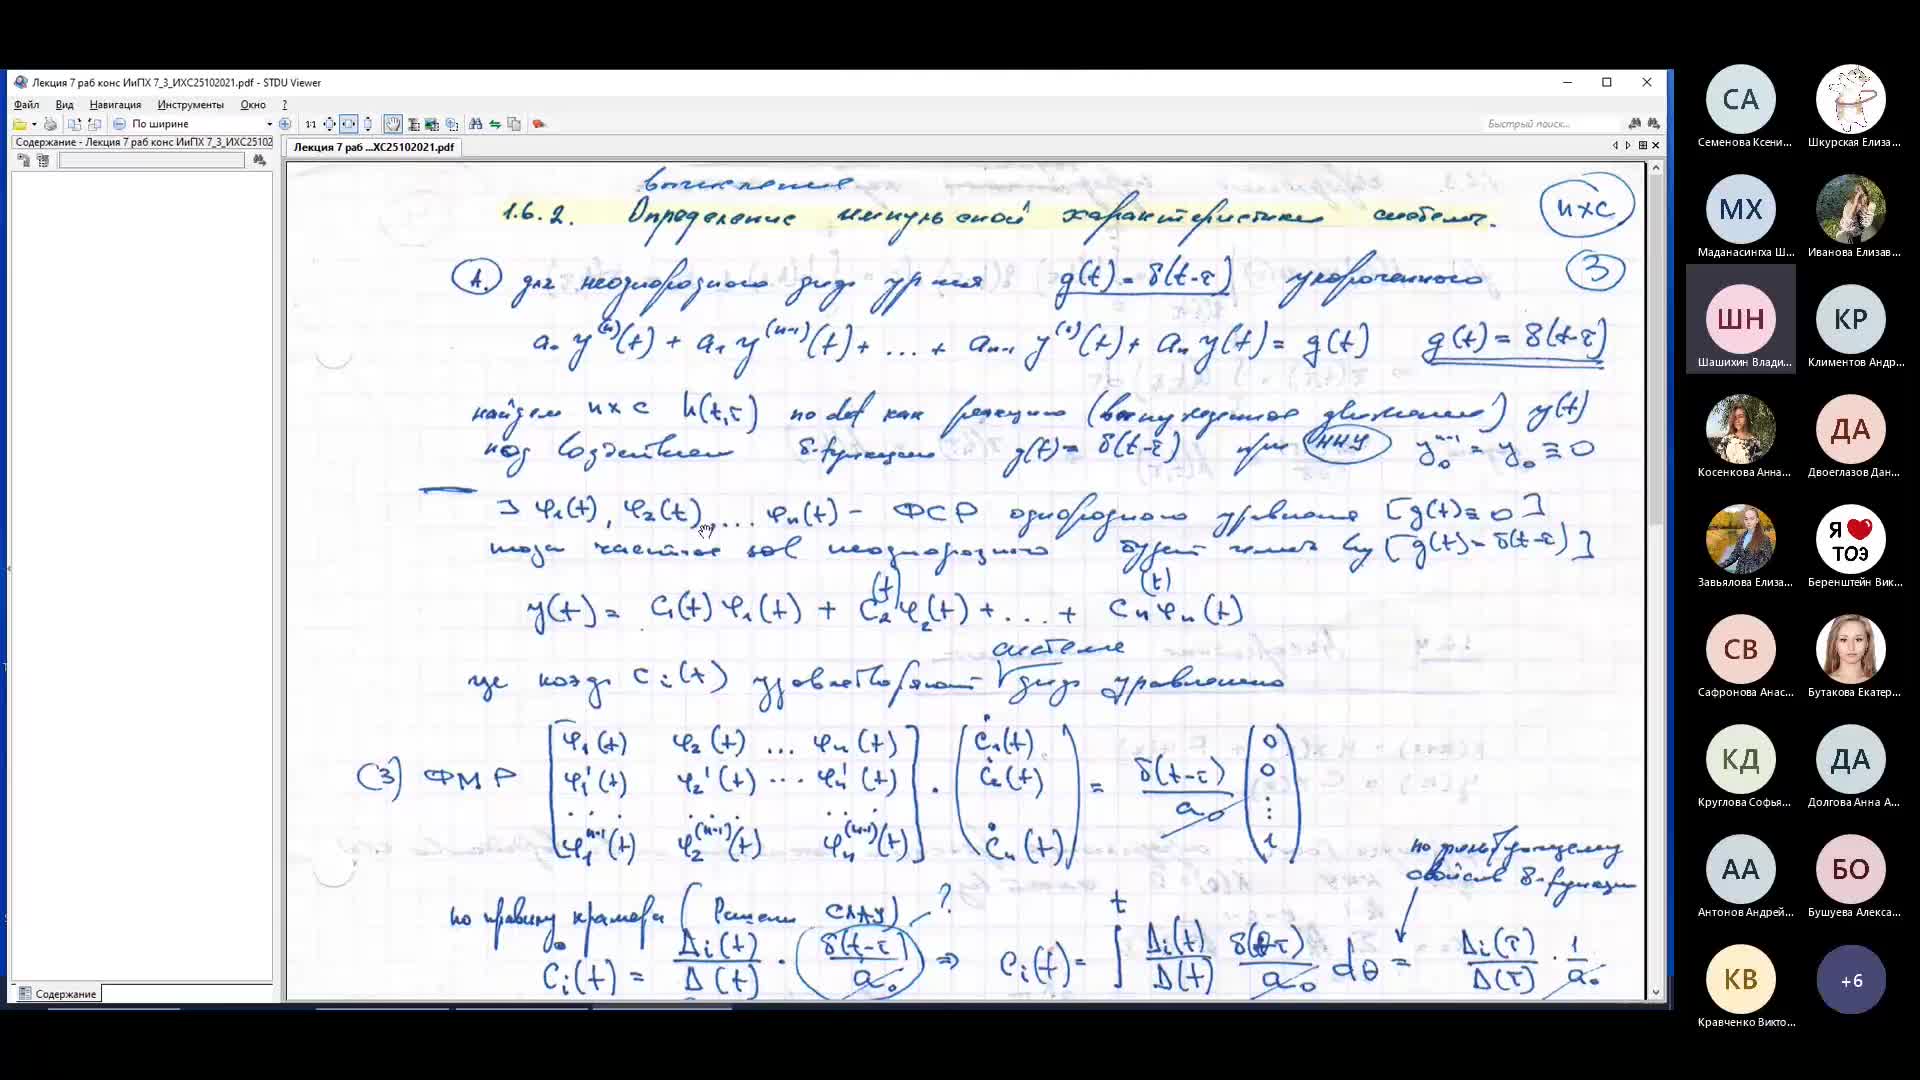 Лекция 7 раб конс ИиПХ 7_3_ИХС25102021.pdf - STDU Viewer
Файл Вид Навигация Инструменты Окно ?
По ширине
Быстрый поиск...
Содержание - Лекция 7 раб конс ИиПХ 7_3_ИХС25102021
Лекция 7 раб ...ХС25102021.pdf
вычисление
1.6.2. Определение импульсной характеристики системы.
ИХС
А. для неоднородного дифф ур-ния g(t) = δ(t-τ) укороченного
3
a₀ y⁽ⁿ⁾(t) + a₁ y⁽ⁿ⁻¹⁾(t) + ... + aₙ₋₁ y⁽¹⁾(t) + aₙ y(t) = g(t) g(t) = δ(t-τ)
найдем ихс h(t,τ) по def как реакцию (вынужденное движение) y(t)
под воздействием δ-функции g(t) = δ(t-τ) при ННУ y₀ⁿ⁻¹ = y₀ ≡ 0
∃ φ₁(t), φ₂(t), ... φₙ(t) - ФСР однородного уравнения [g(t) ≡ 0]
тогда частное sol неоднородного будет иметь [g(t) = δ(t-τ)]
y(t) = C₁(t) φ₁(t) + C₂(t) φ₂(t) + ... + Cₙ(t) φₙ(t)
системе
где коэфф Cᵢ(t) удовлетворяют √ дифф уравнений
(3) ФМР [φ₁(t) φ₂(t) ... φₙ(t)] (Ċ₁(t)) = δ(t-τ)/a₀ (0)
φ₁'(t) φ₂'(t) ... φₙ'(t) Ċ₂(t) 0
. . . . . . ⋮
φ₁ⁿ⁻¹(t) φ₂⁽ⁿ⁻¹⁾(t) φₙ⁽ⁿ⁻¹⁾(t) Ċₙ(t) 1
по фильтрующему
свойству δ-функции
по правилу крамера (Решели СЛАУ) ?
Ċᵢ(t) = Δᵢ(t)/Δ(t) · δ(t-τ)/a₀ ⇒ Cᵢ(t) = ∫ᵗ Δᵢ(t)/Δ(t) δ(θ-τ)/a₀ dθ = Δᵢ(τ)/Δ(τ) · 1/a₀
Содержание
СА
Семенова Ксени...
Шкурская Елиза...
МХ
Маданасингха Ш...
Иванова Елизав...
ШН
Шашихин Влади...
КР
Климентов Андр...
Косенкова Анна...
ДА
Двоеглазов Дан...
Завьялова Елиза...
Я ❤ ТОЭ
Беренштейн Вик...
СВ
Сафронова Анас...
Бутакова Екатер...
КД
Круглова Софья...
ДА
Долгова Анна А...
АА
Антонов Андрей...
БО
Бушуева Алекса...
КВ
Кравченко Викто...
+6